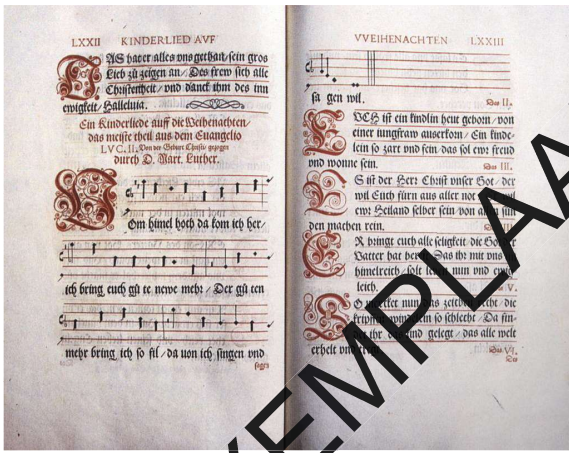 LXXII KINDERLIED AVF
DAS hat er alles vns gethan/sein gros
Lieb zů zeigen an/Des frew sich alle
Christenheit/vnd danck ihm des inn
ewigkeit/Halleluia.
Ein Kinderliede auff die Weihenachten/
das meiste theil aus dem Euangelio
LVC. II. Von der Geburt Christi/ gezogen
durch D. Mart. Luther.
VOm himel hoch da kom ich her/
ich bring euch gů te newe mehr/Der gů ten
mehr bring ich so fil/da von ich singen vnd
sagen
VVEIHENACHTEN LXXIII
sa gen wil.
Das II.
EVCH ist ein kindlin heut geborn/von
einer jungfraw auserkorn/Ein kinde-
lein so zart vnd fein/das sol ewr freud
vnd wonne sein.
Das III.
ES ist der Herr Christ vnser Got/der
wil Euch fürn aus aller not
ewr Heiland selber sein/von allen sun
den machen rein.
ER bringt euch alle seligkeit/die Got der
Vatter hat bereit/Das ihr mit vns
himelreich/solt leben nun vnd ewig
leich.
V.
SO mercket nun das zeichen recht/die
kripffen windelein so schlecht/Da fin-
det ihr das kind gelegt/das alle welt
erhelt vnd tregt.
Das VI.
EXEMPLAA